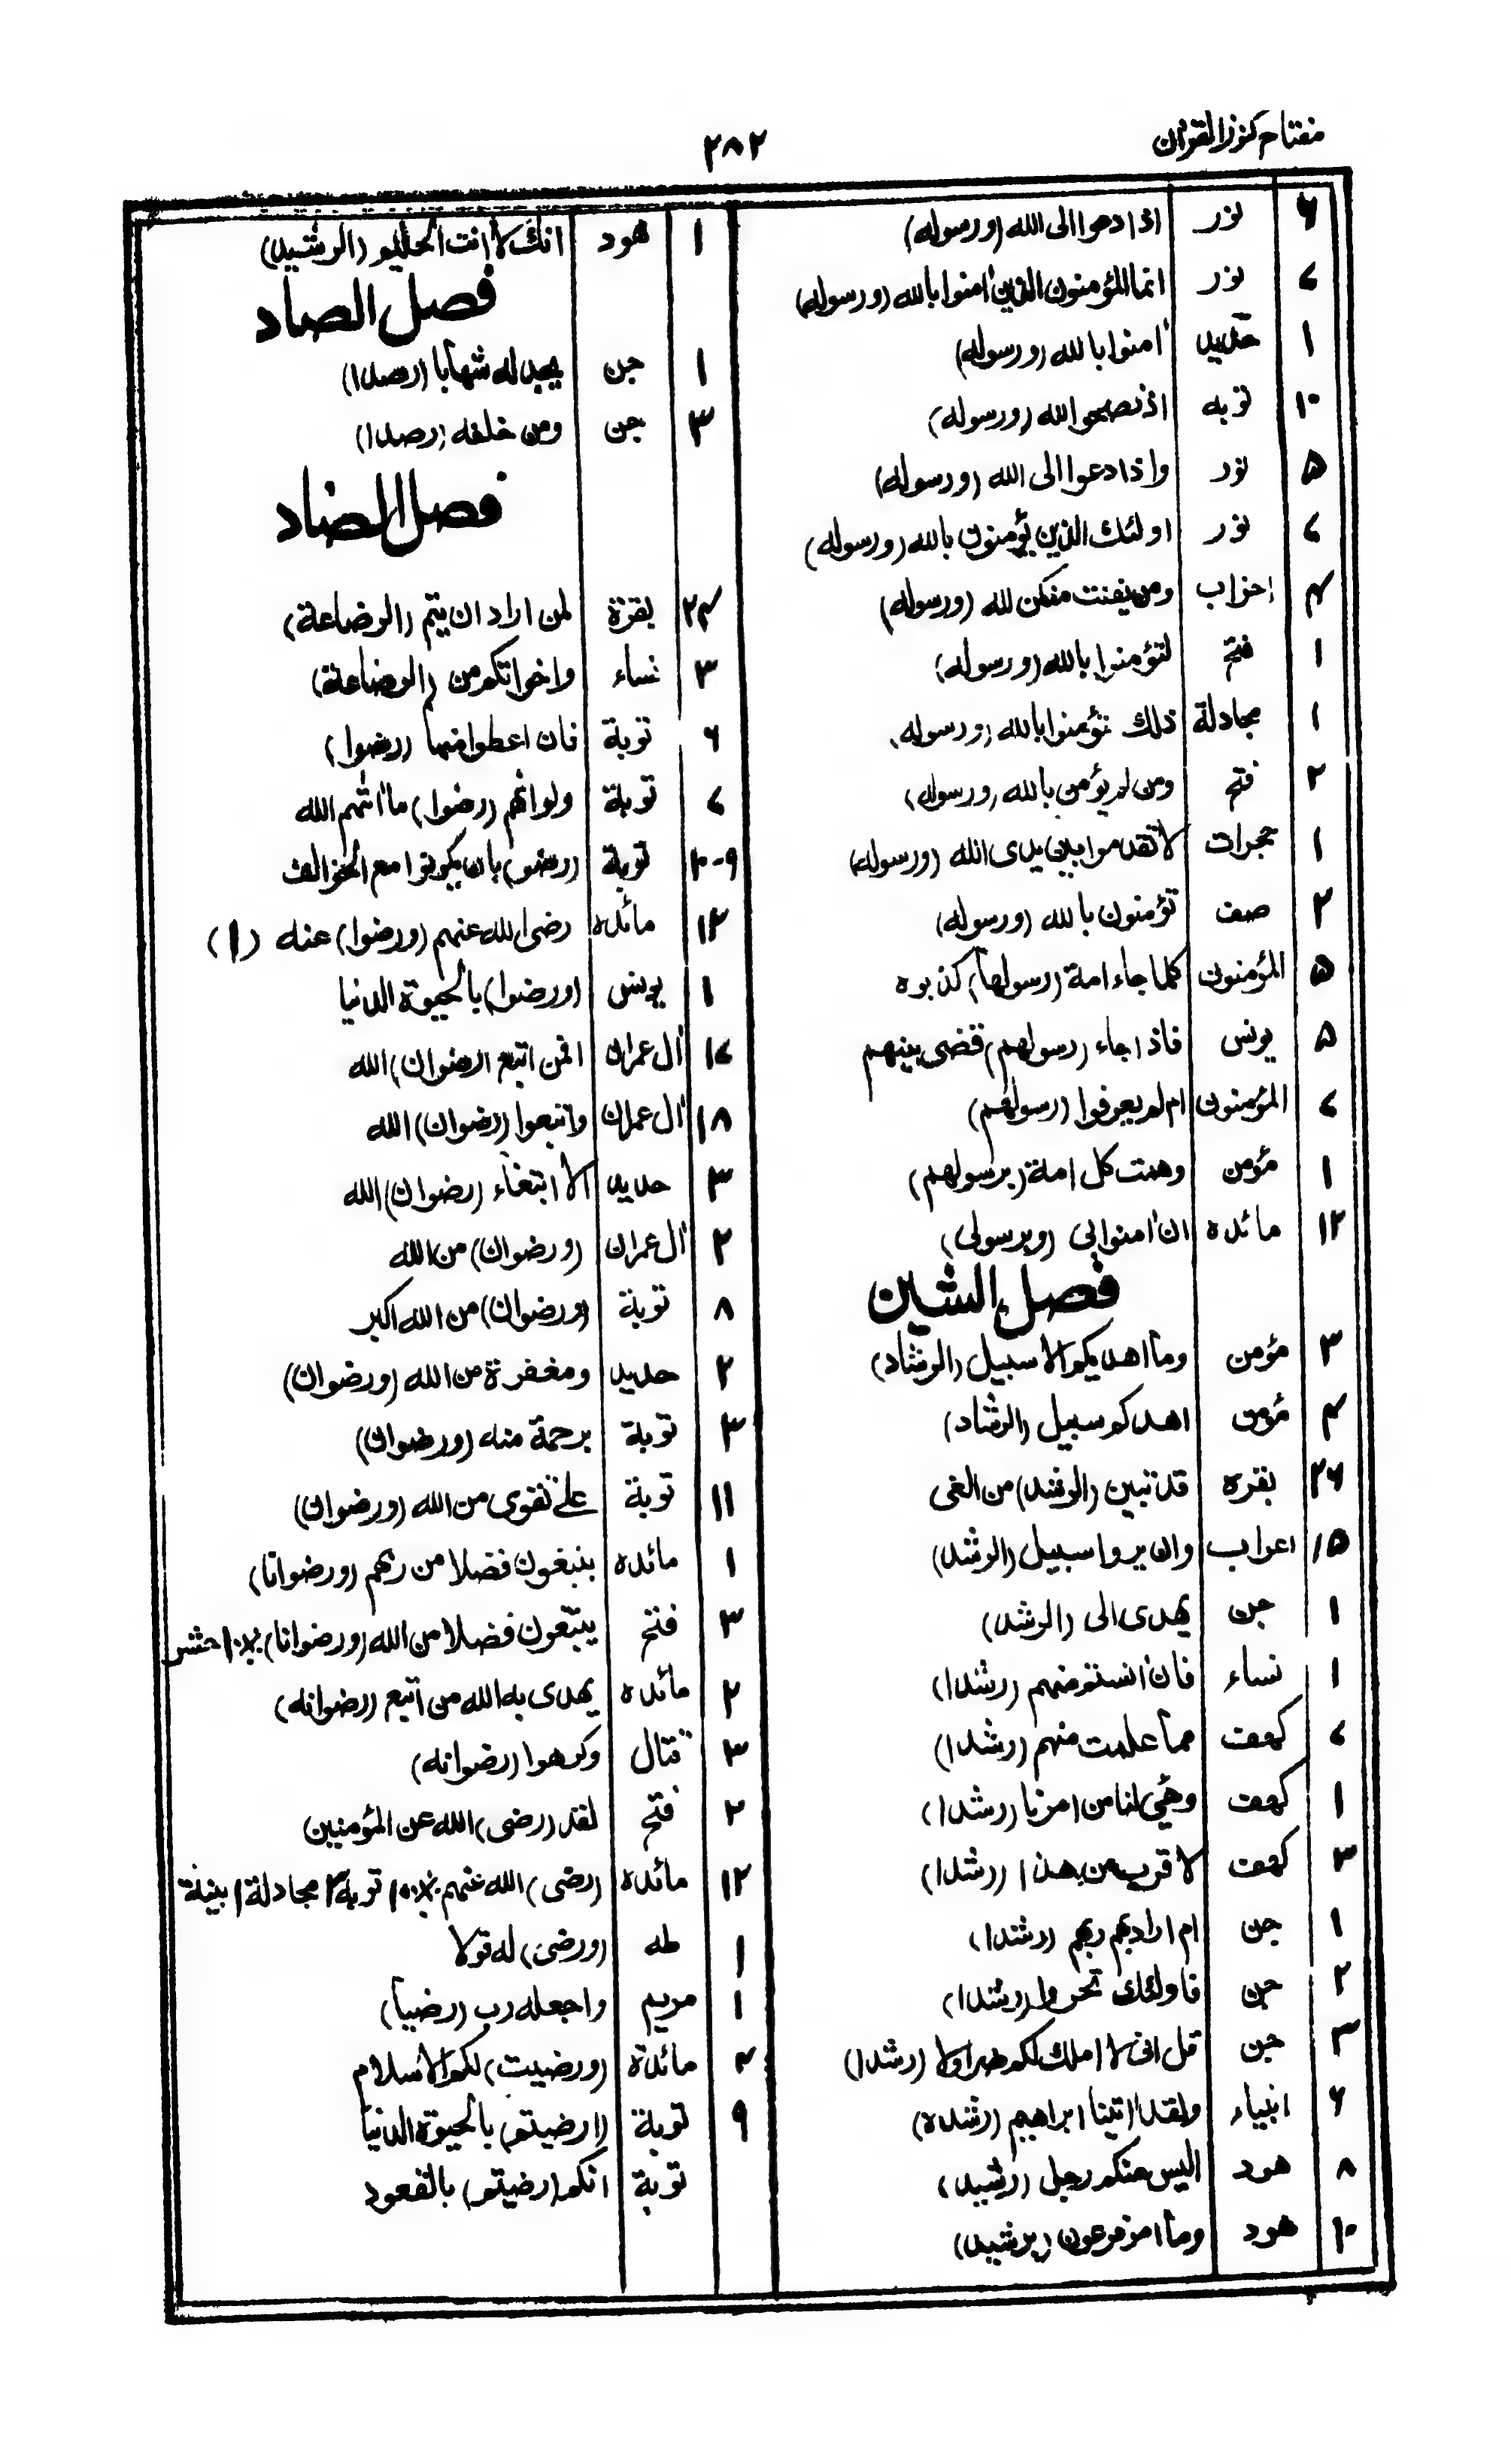 مفتاح كنوز القرآن
۲۸۲
۶ نور اذا دعوا الى الله (ورسوله)
۷ نور انما المؤمنون الذين اٰمنوا بالله (ورسوله)
۱ حديد اٰمنوا بالله (ورسوله)
۱۰ توبه اذ نصحوا الله (ورسوله)
۵ نور واذا دعوا الى الله (ورسوله)
۷ نور اولئك الذين يؤمنون بالله (ورسوله)
۴ احزاب ومن يقنت منكن لله (ورسوله)
۱ فتح لتؤمنوا بالله (ورسوله)
۱ مجادلة ذلك لتؤمنوا بالله (ورسوله)
۲ فتح ومن لم يؤمن بالله (ورسوله)
۱ حجرات لا تقدموا بين يدى الله (ورسوله)
۲ صف تؤمنون بالله (ورسوله)
۵ المؤمنون كلما جاء امة (رسولها) كذبوه
۵ يونس فاذا جاء (رسولهم) قضى بينهم
۷ المؤمنون ام لم يعرفوا (رسولهم)
۱ مؤمن وهمت كل امة (برسولهم)
۱۲ مائده ان اٰمنوا بى (وبرسولى)
فصل الشين
۳ مؤمن وما اهديكم الا سبيل (الرشاد)
۴ مؤمن اهدكم سبيل (الرشاد)
۲۶ بقره قد تبين (الرشد) من الغى
۱۵ اعراب وان يروا سبيل (الرشد)
۱ جن يهدى الى (الرشد)
۱ نساء فان اٰنستم منهم (رشدا)
۷ كهف مما علمت منهم (رشدا)
۱ كهف وهيئ لنا من امرنا (رشدا)
۳ كهف لا قرب من هذا (رشدا)
۱ جن ام اراد بهم ربهم (رشدا)
۲ جن فاولئك تحروا (رشدا)
۳ جن قل انى لا املك لكم ضرا ولا (رشدا)
۶ انبياء ولقد اٰتينا ابراهيم (رشده)
۸ هود اليس منكم رجل (رشيد)
۱۰ هود وما امر فرعون (برشيد)
۱ هود انك لا انت الحليم (الرشيد)
فصل الصاد
۱ جن يجد له شهابا (رصدا)
۳ جن ومن خلفه (رصدا)
فصل الضاد
۲۴ بقرة لمن اراد ان يتم (الرضاعة)
۳ نساء واخواتكم من (الرضاعة)
۶ توبة فان اعطوا منها (رضوا)
۷ توبة ولو انهم (رضوا) ما اٰتٰهم الله
۱۰-۹ توبة (رضوا) بان يكونوا مع الخوالف
۱۲ مائده رضى الله عنهم (ورضوا) عنه (۱)
۱ يونس (ورضوا) بالحيوة الدنيا
۱۷ اٰل عمران افمن اتبع (رضوان) الله
۱۸ اٰل عمران واتبعوا (رضوان) الله
۳ حديد الا ابتغاء (رضوان) الله
۲ اٰل عمران (ورضوان) من الله
۸ توبة (ورضوان) من الله اكبر
۲ حديد ومغفرة من الله (ورضوان)
۳ توبة برحمة منه (ورضوان)
۱۱ توبة على تقوى من الله (ورضوان)
۱ مائده يبتغون فضلا من ربهم (ورضوانا)
۳ فتح يبتغون فضلا من الله (ورضوانا) ۱ حشر
۲ مائده يهدى به الله من اتبع (رضوانه)
۳ قتال وكرهوا (رضوانه)
۲ فتح لقد (رضى) الله عن المؤمنين
۱۲ مائده (رضى) الله عنهم توبة ۳ مجادلة ۱ بينة
۱ طه (ورضى) له قولا
۱ مريم واجعله رب (رضيا)
۴ مائدة (ورضيت) لكم الاسلام
۹ توبة (ارضيتم) بالحيوة الدنيا
توبة انكم (رضيتم) بالقعود